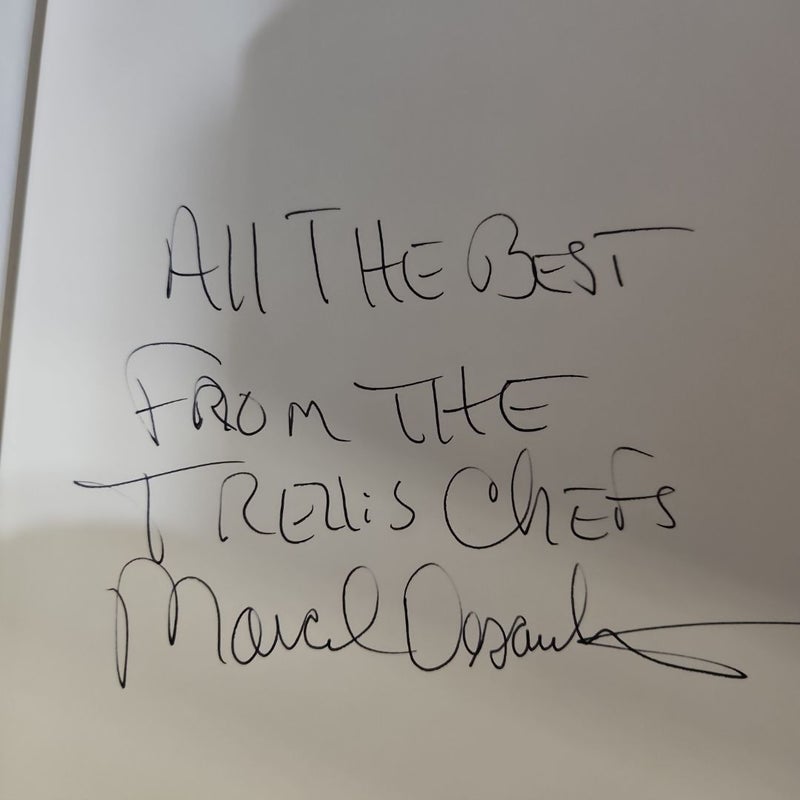 All THE BEST
FROM THE
TRELLiS CHEFS
Marcel Desaulniers